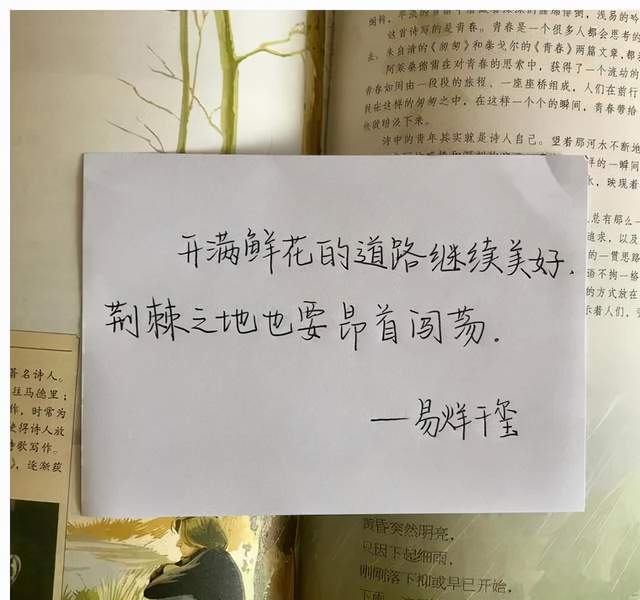 这首诗写的是青春。青春是一个很多人都会思考的
朱自清的《匆匆》和泰戈尔的《青春》两篇文章,都
阿莱桑德雷在对青春的思索中,获得了一个流动的
青春如同由一段段的旅程,一座座桥组成,人们在前行
在这样的匆匆之中,在这样一个个的瞬间,青春带给
诗中的青年其实就是诗人自己。望着那河水不断地
样的一瞬间
水,映现着
总有那么一
追求,以及
的一贯思路
语不拘一格
的方式放在
示着人们,
开满鲜花的道路继续美好,
荆棘之地也要昂首闯荡.
—易烊千玺
著名诗人。
马德里;
作,时常为
使得诗人放
诗歌写作。
逐渐获
黄昏突然明亮,
只因下起细雨,
刚刚落下抑或早已开始,
下雨,